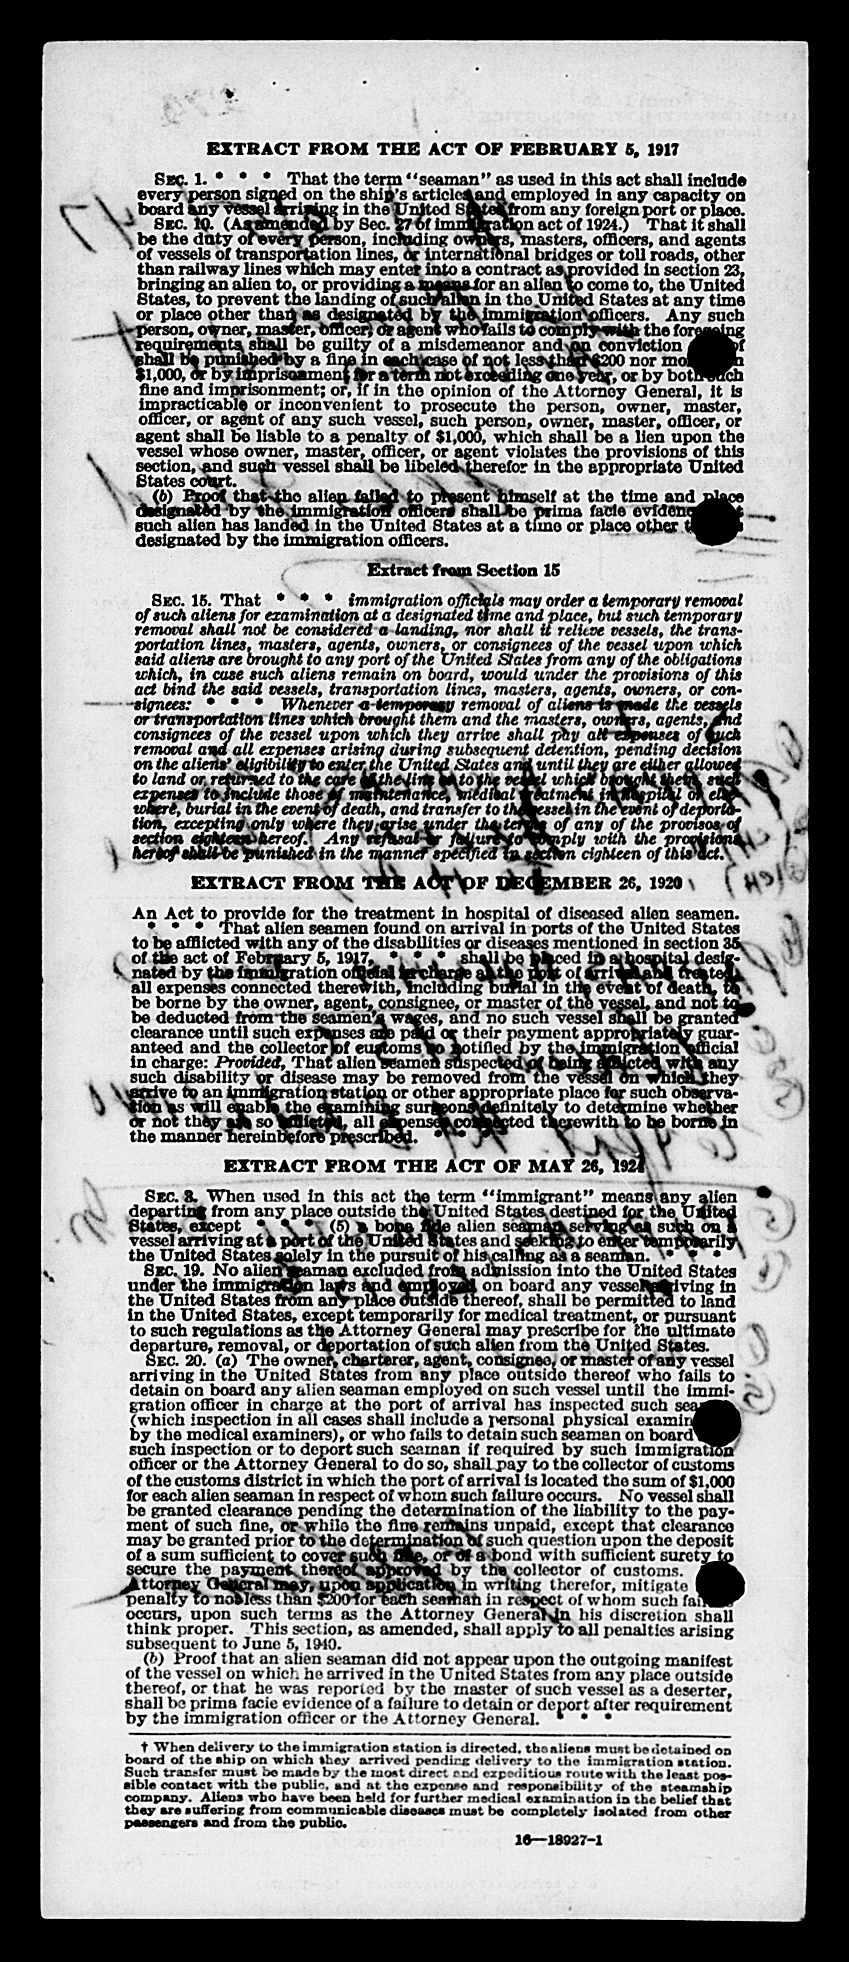 EXTRACT FROM THE ACT OF FEBRUARY 5, 1917
SEC. 1. * * * That the term "seaman" as used in this act shall include
every person signed on the ship's articles and employed in any capacity on
board any vessel arriving in the United States from any foreign port or place.
SEC. 10. (As amended by Sec. 27 of immigration act of 1924.) That it shall
be the duty of every person, including owners, masters, officers, and agents
of vessels of transportation lines, or international bridges or toll roads, other
than railway lines which may enter into a contract as provided in section 23,
bringing an alien to, or providing a means for an alien to come to, the United
States, to prevent the landing of such alien in the United States at any time
or place other than as designated by the immigration officers. Any such
person, owner, master, officer, or agent who fails to comply with the foregoing
requirements shall be guilty of a misdemeanor and on conviction
shall be punished by a fine in each case of not less than $200 nor
$1,000, or by imprisonment for a term not exceeding one year, or by both such
fine and imprisonment; or, if in the opinion of the Attorney General, it is
impracticable or inconvenient to prosecute the person, owner, master,
officer, or agent of any such vessel, such person, owner, master, officer, or
agent shall be liable to a penalty of $1,000, which shall be a lien upon the
vessel whose owner, master, officer, or agent violates the provisions of this
section, and such vessel shall be libeled therefor in the appropriate United
States court.
(b) Proof that the alien failed to present himself at the time and place
designated by the immigration officers shall be prima facie
such alien has landed in the United States at a time or place other
designated by the immigration officers.
Extract from Section 15
SEC. 15. That * * * immigration officials may order a temporary removal
of such aliens for examination at a designated time and place, but such temporary
removal shall not be considered a landing, nor shall it relieve vessels, the trans-
portation lines, masters, agents, owners, or consignees of the vessel upon which
said aliens are brought to any port of the United States from any of the obligations
which, in case such aliens remain on board, would under the provisions of this
act bind the said vessels, transportation lines, masters, agents, owners, or con-
signees: * * * Whenever a temporary removal of aliens is made the vessels
or transportation lines which brought them and the masters, owners, agents, and
consignees of the vessel upon which they arrive shall pay all expenses of such
removal and all expenses arising during subsequent detention, pending decision
on the aliens' eligibility to enter the United States and until they are either allowed
to land or returned to the care of the line or to the vessel which brought them, such
expenses to include those of maintenance, medical treatment in hospital or else-
where, burial in the event of death, and transfer to the vessel in the event of deporta-
tion, excepting only where they arise under the terms of any of the provisos of
section eighteen hereof. Any refusal or failure to comply with the provisions
hereof shall be punished in the manner specified in section eighteen of this act.
EXTRACT FROM THE ACT OF DECEMBER 26, 1920
An Act to provide for the treatment in hospital of diseased alien seamen.
* * * That alien seamen found on arrival in ports of the United States
to be afflicted with any of the disabilities or diseases mentioned in section 35
of the act of February 5, 1917, * * * shall be placed in a hospital desig-
nated by the immigration official in charge at the port of arrival and treated,
all expenses connected therewith, including burial in the event of death, to
be borne by the owner, agent, consignee, or master of the vessel, and not to
be deducted from the seamen's wages, and no such vessel shall be granted
clearance until such expenses are paid or their payment appropriately guar-
anteed and the collector of customs so notified by the immigration official
in charge: Provided, That alien seamen suspected of being afflicted with any
such disability or disease may be removed from the vessel on which they
arrive to an immigration station or other appropriate place for such observa-
tion as will enable the examining surgeons definitely to determine whether
or not they are so afflicted, all expenses connected therewith to be borne in
the manner hereinbefore prescribed. * * *
EXTRACT FROM THE ACT OF MAY 26, 1924
SEC. 3. When used in this act the term "immigrant" means any alien
departing from any place outside the United States destined for the United
States, except * * * (5) a bona fide alien seaman serving as such on a
vessel arriving at a port of the United States and seeking to enter temporarily
the United States solely in the pursuit of his calling as a seaman. * * *
SEC. 19. No alien seaman excluded from admission into the United States
under the immigration laws and employed on board any vessel arriving in
the United States from any place outside thereof, shall be permitted to land
in the United States, except temporarily for medical treatment, or pursuant
to such regulations as the Attorney General may prescribe for the ultimate
departure, removal, or deportation of such alien from the United States.
SEC. 20. (a) The owner, charterer, agent, consignee, or master of any vessel
arriving in the United States from any place outside thereof who fails to
detain on board any alien seaman employed on such vessel until the immi-
gration officer in charge at the port of arrival has inspected such
(which inspection in all cases shall include a personal physical
by the medical examiners), or who fails to detain such seaman on board
such inspection or to deport such seaman if required by such immigration
officer or the Attorney General to do so, shall pay to the collector of customs
of the customs district in which the port of arrival is located the sum of $1,000
for each alien seaman in respect of whom such failure occurs. No vessel shall
be granted clearance pending the determination of the liability to the pay-
ment of such fine, or while the fine remains unpaid, except that clearance
may be granted prior to the determination of such question upon the deposit
of a sum sufficient to cover such fine, or of a bond with sufficient surety to
secure the payment thereof approved by the collector of customs.
Attorney General may, upon application in writing therefor, mitigate
penalty to not less than $200 for each seaman in respect of whom such
occurs, upon such terms as the Attorney General in his discretion shall
think proper. This section, as amended, shall apply to all penalties arising
subsequent to June 5, 1940.
(b) Proof that an alien seaman did not appear upon the outgoing manifest
of the vessel on which he arrived in the United States from any place outside
thereof, or that he was reported by the master of such vessel as a deserter,
shall be prima facie evidence of a failure to detain or deport after requirement
by the immigration officer or the Attorney General. * * *
† When delivery to the immigration station is directed, the aliens must be detained on
board of the ship on which they arrived pending delivery to the immigration station.
Such transfer must be made by the most direct and expeditious route with the least pos-
sible contact with the public, and at the expense and responsibility of the steamship
company. Aliens who have been held for further medical examination in the belief that
they are suffering from communicable diseases must be completely isolated from other
passengers and from the public.
16—18927-1